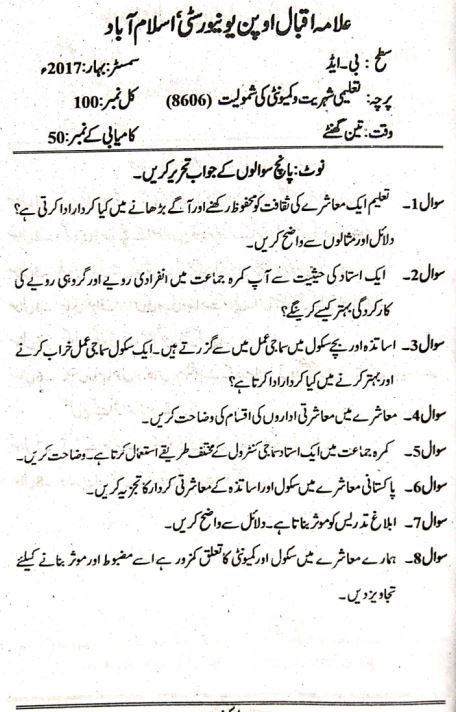 علامہ اقبال اوپن یونیورسٹی، اسلام آباد
سطح: بی۔ایڈ
سمسٹر: بہار: 2017ء
پرچہ: تعلیمی شہریت و کمیونٹی کی شمولیت (8606)
کل نمبر: 100
وقت: تین گھنٹے
کامیابی کے نمبر: 50
نوٹ: پانچ سوالوں کے جواب تحریر کریں۔
سوال 1۔ تعلیم ایک معاشرے کی ثقافت کو محفوظ رکھنے اور آگے بڑھانے میں کیا کردار ادا کرتی ہے؟
دلائل اور مثالوں سے واضح کریں۔
سوال 2۔ ایک استاد کی حیثیت سے آپ کمرہ جماعت میں انفرادی رویے اور گروہی رویے کی
کارکردگی بہتر کیسے کرینگے؟
سوال 3۔ اساتذہ اور بچے سکول میں سماجی عمل میں سے گزرتے ہیں۔ ایک سکول سماجی عمل خراب کرنے
اور بہتر کرنے میں کیا کردار ادا کرتا ہے؟
سوال 4۔ معاشرے میں معاشرتی اداروں کی اقسام کی وضاحت کریں۔
سوال 5۔ کمرہ جماعت میں ایک استاد سماجی کنٹرول کے مختلف طریقے استعمال کرتا ہے۔ وضاحت کریں۔
سوال 6۔ پاکستانی معاشرے میں سکول اور اساتذہ کے معاشرتی کردار کا تجزیہ کریں۔
سوال 7۔ ابلاغ تدریس کو موثر بناتا ہے۔ دلائل سے واضح کریں۔
سوال 8۔ ہمارے معاشرے میں سکول اور کمیونٹی کا تعلق کمزور ہے اسے مضبوط اور موثر بنانے کیلئے
تجاویز دیں۔